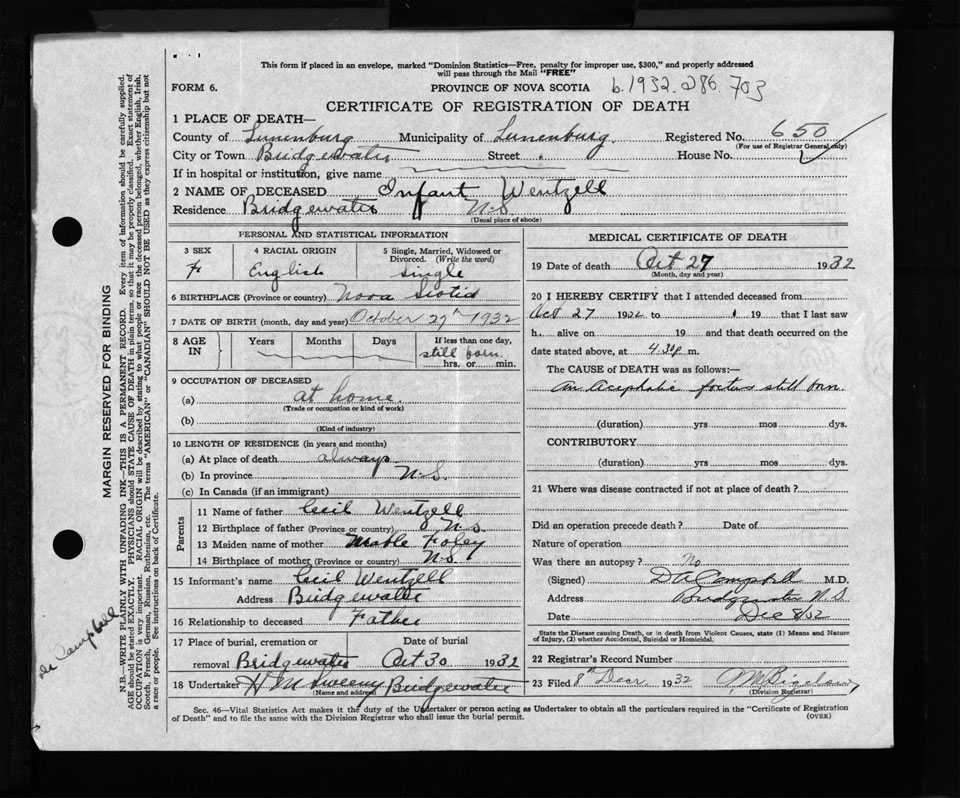 This form if placed in an envelope, marked "Dominion Statistics—Free, penalty for improper use, $300," and properly addressed
will pass through the Mail "FREE"
FORM 6.
PROVINCE OF NOVA SCOTIA
b.1932.286 703
CERTIFICATE OF REGISTRATION OF DEATH
1 PLACE OF DEATH—
County of Lunenburg Municipality of Lunenburg Registered No. 650
(For use of Registrar General only)
City or Town Bridgewater Street House No.
If in hospital or institution, give name
2 NAME OF DECEASED Infant Wentzell
Residence Bridgewater N.S.
(Usual place of abode)
PERSONAL AND STATISTICAL INFORMATION
3 SEX 4 RACIAL ORIGIN 5 Single, Married, Widowed or Divorced. (Write the word)
F English single
6 BIRTHPLACE (Province or country) Nova Scotia
7 DATE OF BIRTH (month, day and year) October 27th 1932
8 AGE IN Years Months Days If less than one day,
still born
hrs. or min.
9 OCCUPATION OF DECEASED
(a) at home.
(Trade or occupation or kind of work)
(b)
(Kind of industry)
10 LENGTH OF RESIDENCE (in years and months)
(a) At place of death always
(b) In province N.S.
(c) In Canada (if an immigrant)
Parents
11 Name of father Cecil Wentzell
12 Birthplace of father (Province or country) N.S.
13 Maiden name of mother Mable Foley
14 Birthplace of mother (Province or country) N.S.
15 Informant's name Cecil Wentzell
Address Bridgewater
16 Relationship to deceased Father
17 Place of burial, cremation or Date of burial
removal Bridgewater Oct 30 1932
18 Undertaker H M Sweeny Bridgewater
(Name and address)
MEDICAL CERTIFICATE OF DEATH
19 Date of death Oct 27 1932
(Month, day and year)
20 I HEREBY CERTIFY that I attended deceased from
Oct 27 19 to 19 that I last saw
h alive on 19 and that death occurred on
date stated above, at 4.30 p m.
The CAUSE of DEATH was as follows:—
an Acephalic foetus still born
(duration) yrs mos dys.
CONTRIBUTORY
(duration) yrs mos dys.
21 Where was disease contracted if not at place of death?
Did an operation precede death? Date of
Nature of operation
Was there an autopsy? No
(Signed) DA Campbell M.D.
Address Bridgewater N.S
Date Dec 8/32
State the Disease causing Death, or in death from Violent Causes, state (1) Means and Nature
of Injury, (2) whether Accidental, Suicidal or Homicidal.
22 Registrar's Record Number
23 Filed 8th Decr. 1932
(Division Registrar)
Sec. 46—Vital Statistics Act makes it the duty of the Undertaker or person acting as Undertaker to obtain all the particulars required in the "Certificate of Registration
of Death" and to file the same with the Division Registrar who shall issue the burial permit.
(OVER)
MARGIN RESERVED FOR BINDING
N.B.—WRITE PLAINLY WITH UNFADING INK—THIS IS A PERMANENT RECORD. Every item of information should be carefully supplied.
AGE should be stated EXACTLY. PHYSICIANS should STATE CAUSE OF DEATH in plain terms, so that it may be properly classified. Exact statement of
OCCUPATION is very important. RACIAL ORIGIN will be described by stating to what people or race the deceased person belonged, whether English, Irish,
Scotch, French, German, Russian, Ruthenian, etc. The terms "AMERICAN" or "CANADIAN" SHOULD NOT BE USED as they express citizenship but not
a race or people. See instructions on back of Certificate.
Campbell